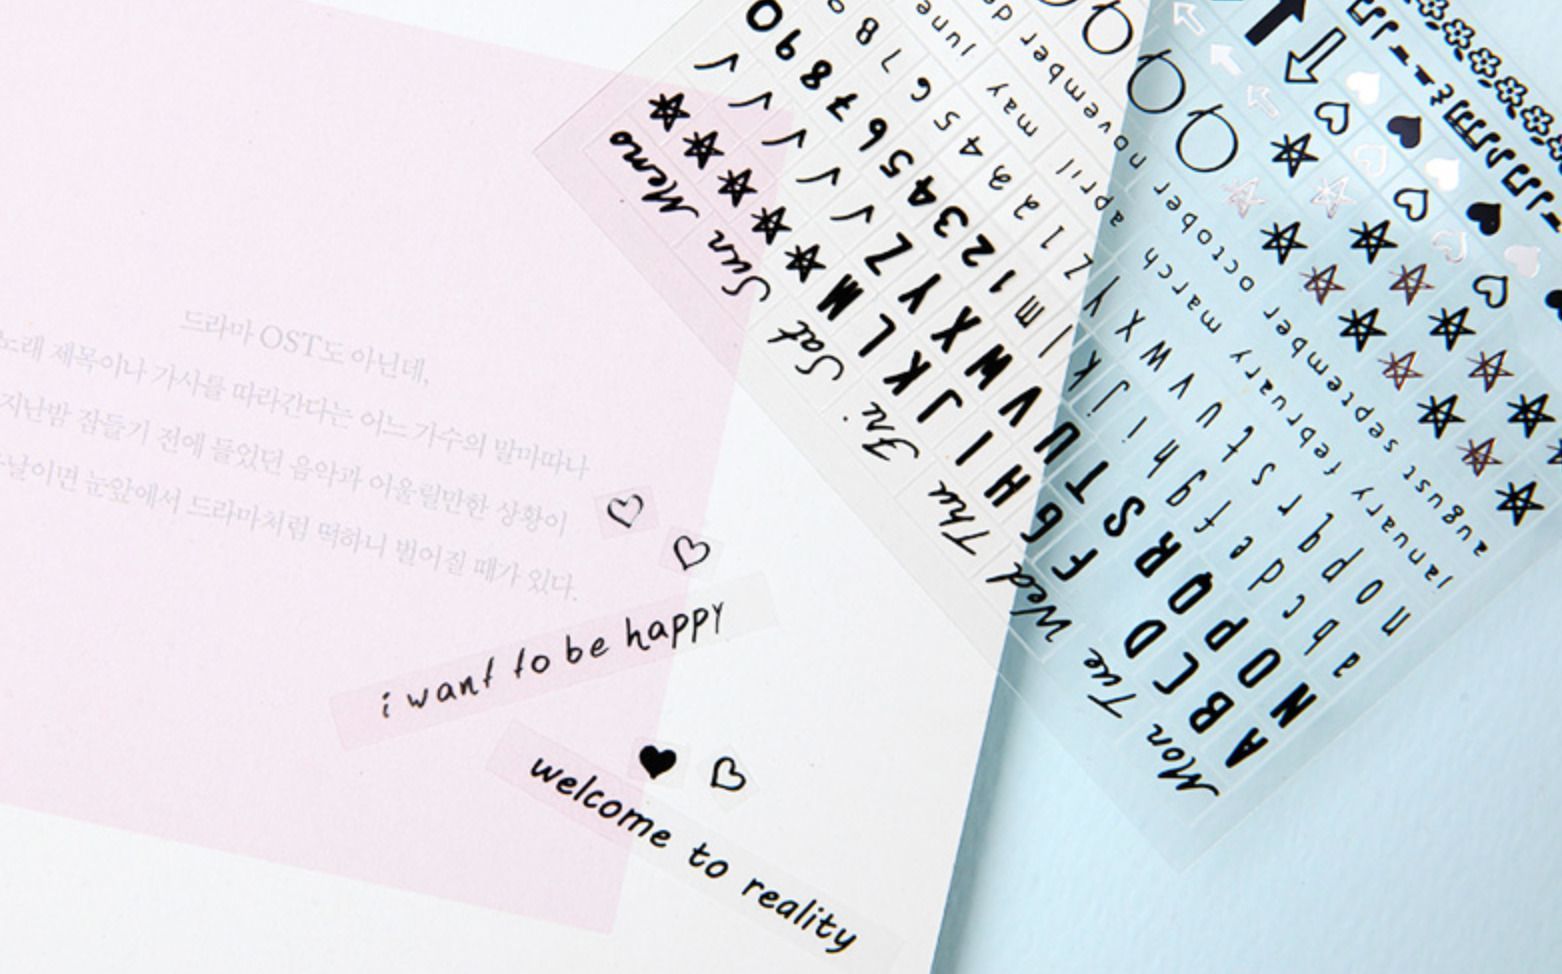 드라마 OST도 아닌데,
노래 제목이나 가사를 따라간다는 어느 가수의 말마따나
지난밤 잠들기 전에 들었던 음악과 어울릴만한 상황이
날이면 눈앞에서 드라마처럼 떡하니 벌어질 때가 있다.
i want to be happy
welcome to reality
Memo
Sun
Sat
Fri
Thu
Wed
Tue
Mon
A B C D F G H I J K L M
N O P Q R S T U V W X Y Z
1 2 3 4 5 6 7 8 9 0
a b c d e f g h i j k l m
n o p q r s t u v w x y z
1 2 2 4 5 6 7 8
january february march april may june
august september october november de